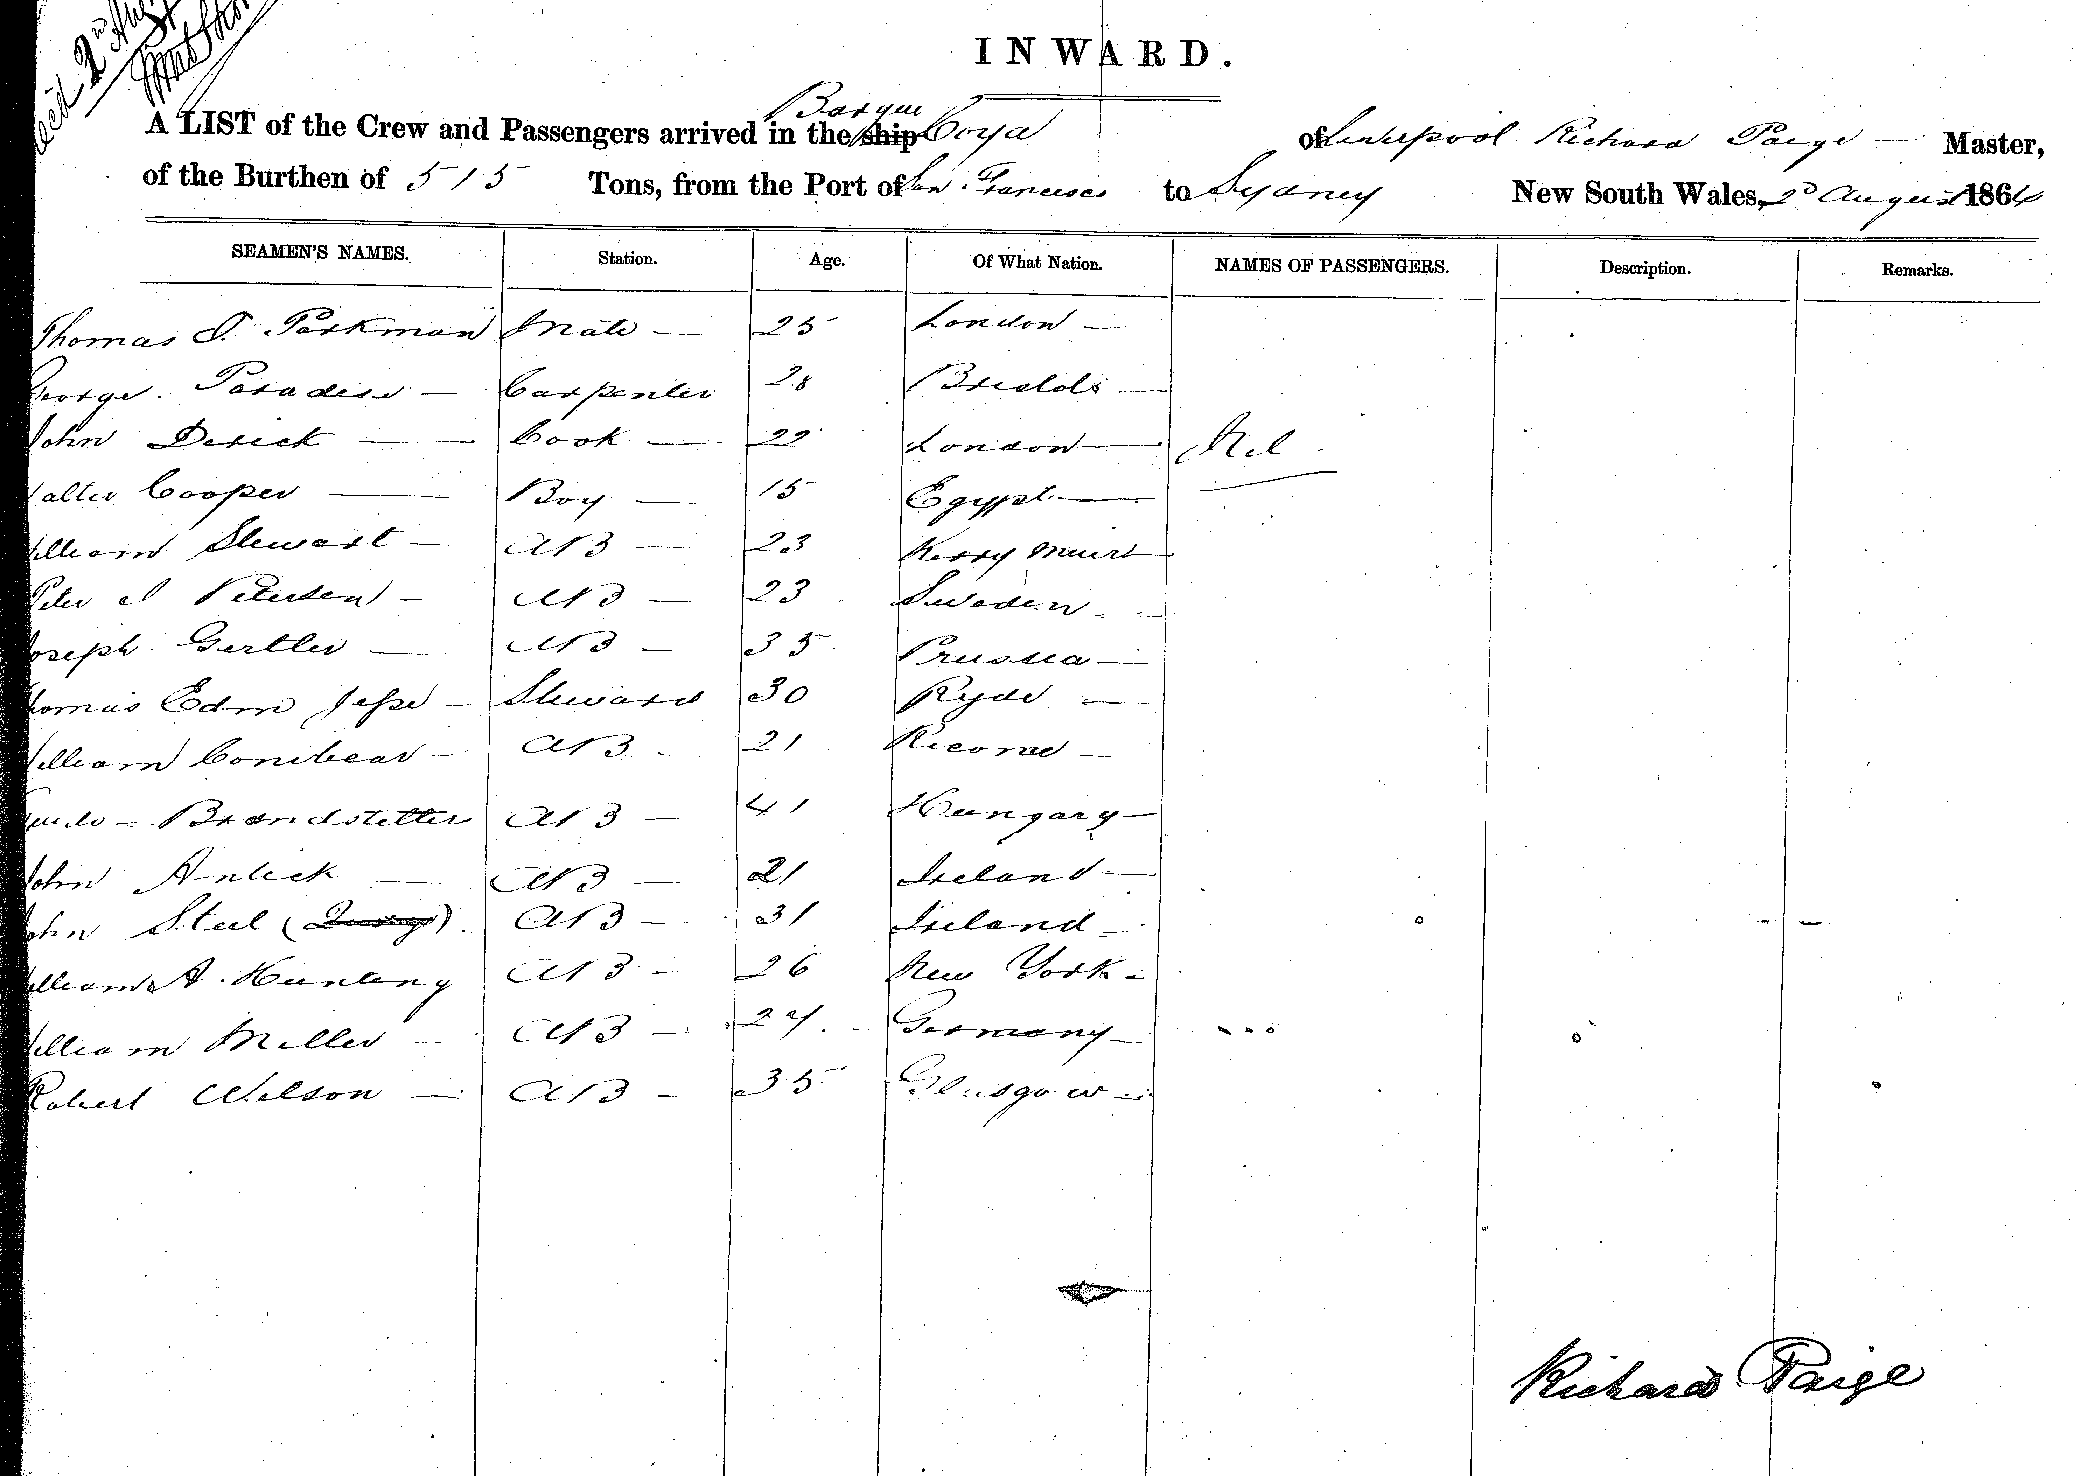 2nd Aug
INWARD.
A LIST of the Crew and Passengers arrived in the ship Barque Coya of Liverpool Richard Paige — Master,
of the Burthen of 515 Tons, from the Port of San Francisco to Sydney New South Wales, 2d August 1864
SEAMEN'S NAMES. Station. Age. Of What Nation. NAMES OF PASSENGERS. Description. Remarks.
Thomas J. Parkman Mate — 25 London —
George. Paradise — Carpenter 28 Bristol —
John Derick — — Cook — 22 London — Nil
Walter Cooper — Boy — 15 Egypt —
William Stewart — AB — 23 Kerry Muir —
Peter Petersen — AB — 23 Sweden —
Joseph Gertler — AB — 35 Prussia —
Thomas Edm Jesse — Steward 30 Ryde —
William Conibear — AB — 21
Guido — Brandstetter AB — 41 Hungary —
John — AB — 21 Ireland —
John Steel AB — 31 Ireland —
William A. Hunting AB — 26 New York —
William Miller — AB — 27 Germany —
Robert Wilson — AB — 35 Glasgow —
Richard Paige